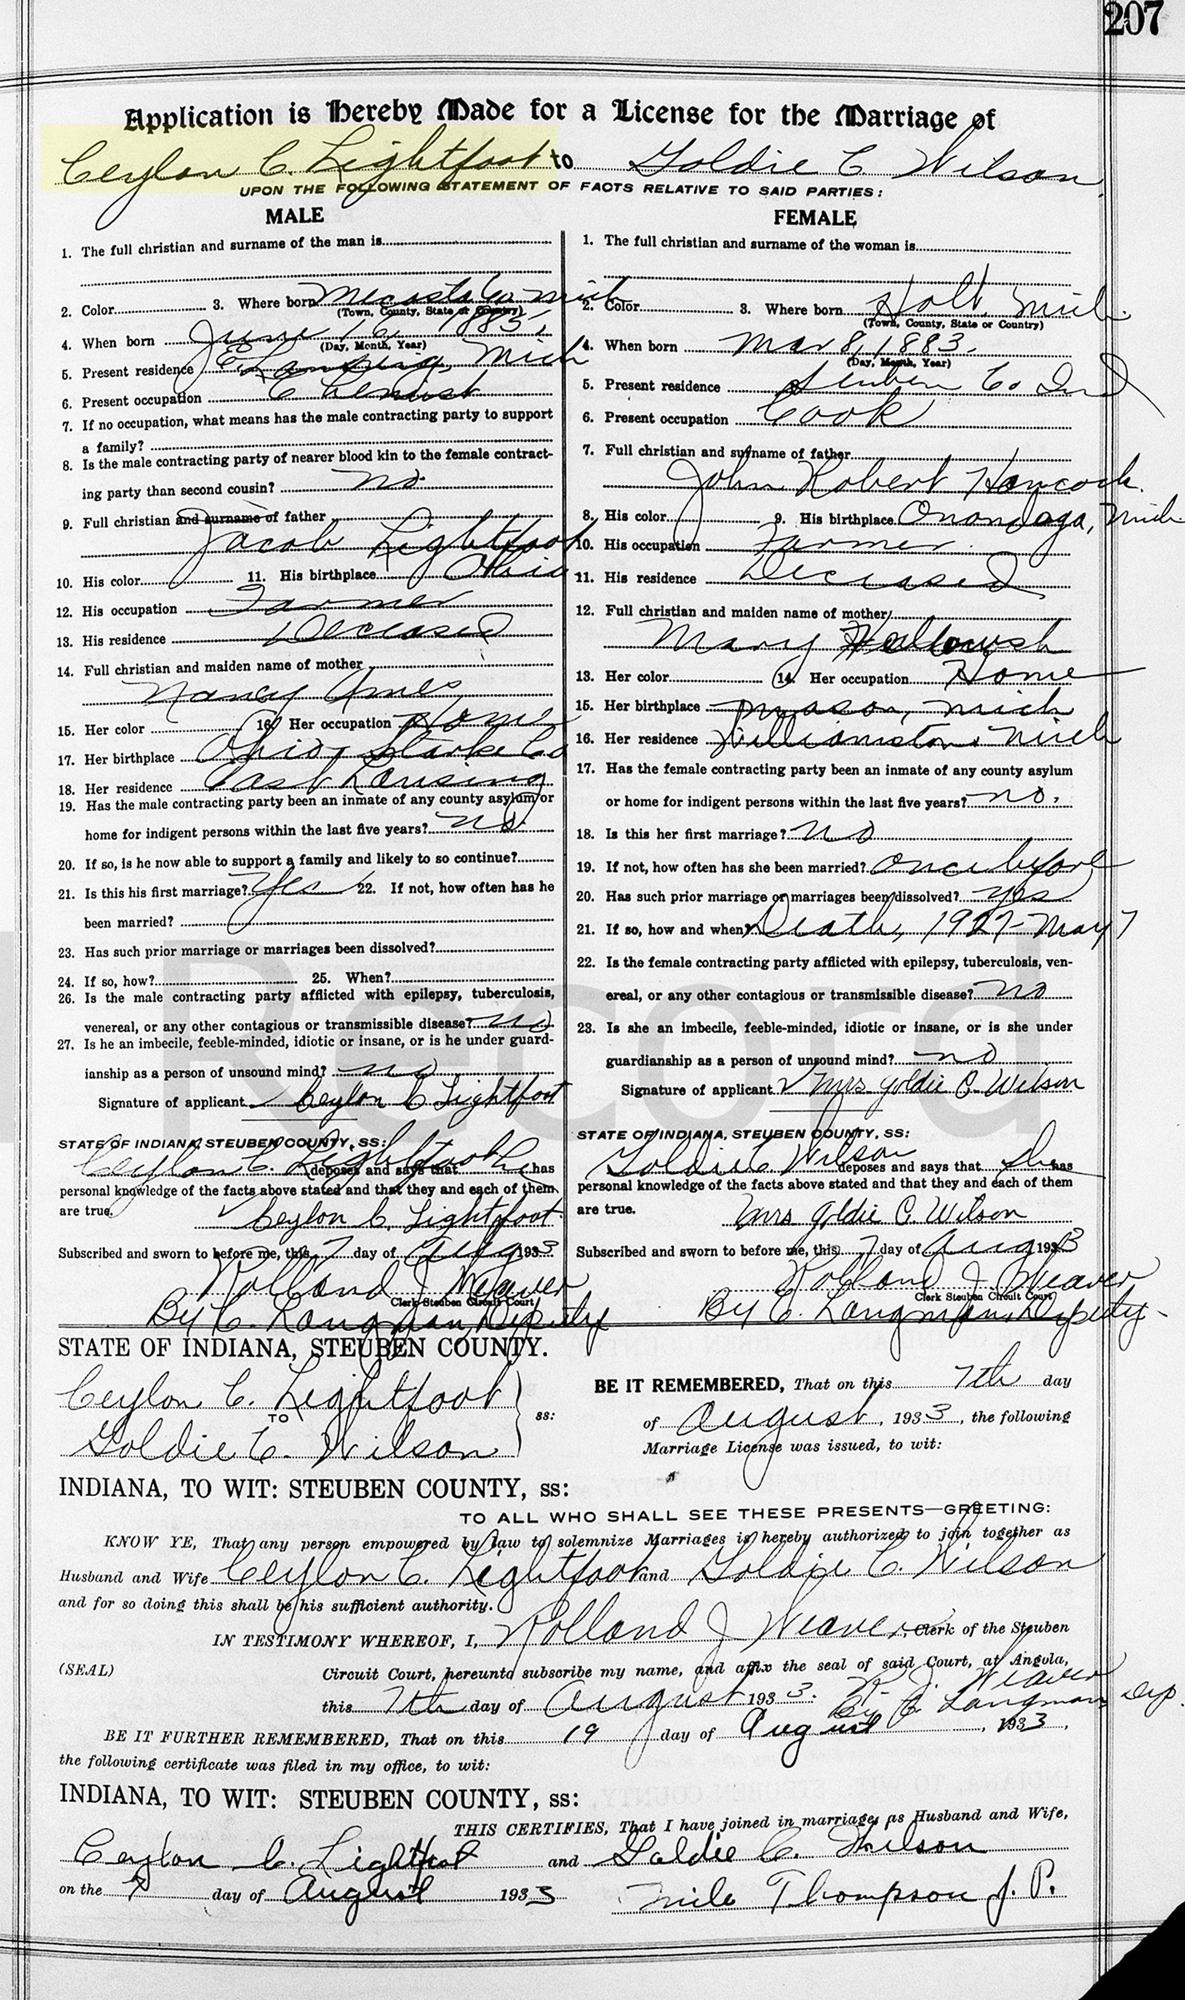 207
Application is Hereby Made for a License for the Marriage of
Ceylon C. Lightfoot to Goldie C Wilson
UPON THE FOLLOWING STATEMENT OF FACTS RELATIVE TO SAID PARTIES:
MALE
1. The full christian and surname of the man is
2. Color 3. Where born Mecosta Co Mich
(Town, County, State or Country)
4. When born June 16 1885,
(Day, Month, Year)
5. Present residence E Lansing, Mich
6. Present occupation Chemist
7. If no occupation, what means has the male contracting party to support
a family?
8. Is the male contracting party of nearer blood kin to the female contract-
ing party than second cousin? no
9. Full christian and surname of father
Jacob Lightfoot
10. His color 11. His birthplace Ohio
12. His occupation Farmer
13. His residence Deceased
14. Full christian and maiden name of mother
Nancy Ames
15. Her color 16. Her occupation Home
17. Her birthplace Ohio, Starke Co
18. Her residence East Lansing
19. Has the male contracting party been an inmate of any county asylum or
home for indigent persons within the last five years? no
20. If so, is he now able to support a family and likely to so continue?
21. Is this his first marriage? Yes 22. If not, how often has he
been married?
23. Has such prior marriage or marriages been dissolved?
24. If so, how? 25. When?
26. Is the male contracting party afflicted with epilepsy, tuberculosis,
venereal, or any other contagious or transmissible disease? no
27. Is he an imbecile, feeble-minded, idiotic or insane, or is he under guard-
ianship as a person of unsound mind? no
Signature of applicant Ceylon C Lightfoot
STATE OF INDIANA, STEUBEN COUNTY, SS:
Ceylon C. Lightfoot deposes and says that he has
personal knowledge of the facts above stated and that they and each of them
are true. Ceylon C. Lightfoot
Subscribed and sworn to before me, this 7 day of Aug 1933
Rolland J Weaver
Clerk Steuben Circuit Court
By C. Langman, Deputy
FEMALE
1. The full christian and surname of the woman is
2. Color 3. Where born Holt, Mich.
(Town, County, State or Country)
4. When born Mar 8, 1883.
(Day, Month, Year)
5. Present residence Steuben Co Ind
6. Present occupation Cook
7. Full christian and surname of father
John Robert Hancock
8. His color 9. His birthplace Onondaga, Mich
10. His occupation Farmer
11. His residence Deceased
12. Full christian and maiden name of mother
Mary
13. Her color 14. Her occupation Home
15. Her birthplace Mason, Mich
16. Her residence Williamston Mich
17. Has the female contracting party been an inmate of any county asylum
or home for indigent persons within the last five years? no.
18. Is this her first marriage? no
19. If not, how often has she been married? once before
20. Has such prior marriage or marriages been dissolved? yes
21. If so, how and when? Death, 1927-May 7
22. Is the female contracting party afflicted with epilepsy, tuberculosis, ven-
ereal, or any other contagious or transmissible disease? no
23. Is she an imbecile, feeble-minded, idiotic or insane, or is she under
guardianship as a person of unsound mind? no
Signature of applicant Mrs Goldie C. Wilson
STATE OF INDIANA, STEUBEN COUNTY, SS:
Goldie C Wilson deposes and says that she has
personal knowledge of the facts above stated and that they and each of them
are true. Mrs Goldie C. Wilson
Subscribed and sworn to before me, this 7 day of Aug 1933
Rolland J Weaver
Clerk Steuben Circuit Court
By C. Langman, Deputy
STATE OF INDIANA, STEUBEN COUNTY.
Ceylon C. Lightfoot
TO
Goldie C. Wilson
ss:
BE IT REMEMBERED, That on this 7th day
of August, 1933, the following
Marriage License was issued, to wit:
INDIANA, TO WIT: STEUBEN COUNTY, ss:
TO ALL WHO SHALL SEE THESE PRESENTS—GREETING:
KNOW YE, That any person empowered by law to solemnize Marriages is hereby authorized to join together as
Husband and Wife Ceylon C. Lightfoot and Goldie C. Wilson
and for so doing this shall be his sufficient authority.
IN TESTIMONY WHEREOF, I, Rolland J Weaver, Clerk of the Steuben
(SEAL) Circuit Court, hereunto subscribe my name, and affix the seal of said Court, at Angola,
this 7th day of August 1933. R. J. Weaver
By C Langman Dep.
BE IT FURTHER REMEMBERED, That on this 19 day of August, 1933,
the following certificate was filed in my office, to wit:
INDIANA, TO WIT: STEUBEN COUNTY, ss:
THIS CERTIFIES, That I have joined in marriage, as Husband and Wife,
Ceylon C. Lightfoot and Goldie C. Wilson
on the 7 day of August 1933
Milo Thompson J. P.
Record